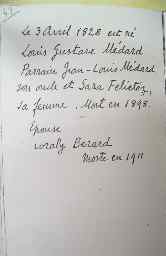 Le 3 Avril 1828 est né
Louis Gustave Médard
Parrain Jean-Louis Médard
son oncle et Sara
sa femme. Mort en 1898.
Epouse
Coraly Berard
Morte en 1911